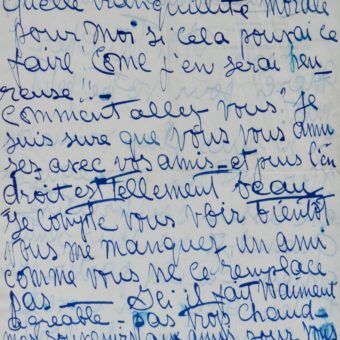 Quelle tranquillité morale
pour moi si cela pouvai ce
faire! Come j'en serai heu-
reuse!!-
Comment allez vous? Je
suis sure que vous vous amu
sez avec vos amis - et puis l'en
droit est tellement beau
Je compte vous voir bientôt
vous me manquez un ami
comme vous ne ce remplace
pas — Ici il fait vraiment
agreable - pas trop chaud -
mes souvenirs aux amis pour vous